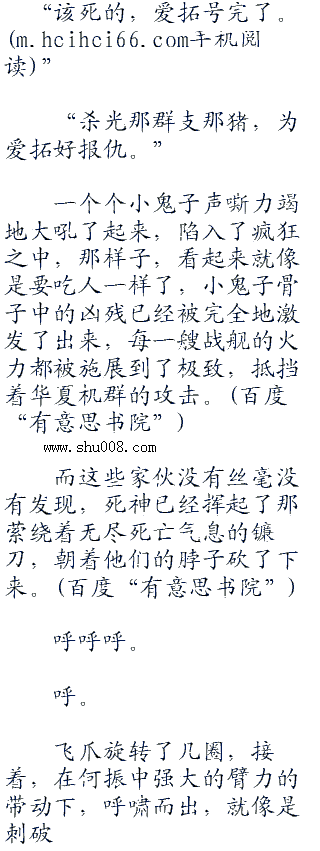 “该死的，爱拓号完了。
(m.hcihci66.com手机阅
读)”
“杀光那群支那猪，为
爱拓好报仇。”
一个个小鬼子声嘶力竭
地大吼了起来，陷入了疯狂
之中，那样子，看起来就像
是要吃人一样了，小鬼子骨
子中的凶残已经被完全地激
发了出来，每一艘战舰的火
力都被施展到了极致，抵挡
着华夏机群的攻击。(百度
“有意思书院”)
www.shu008.com
而这些家伙没有丝毫没
有发现，死神已经挥起了那
萦绕着无尽死亡气息的镰
刀，朝着他们的脖子砍了下
来。(百度“有意思书院”)
呼呼呼。
呼。
飞爪旋转了几圈，接
着，在何振中强大的臂力的
带动下，呼啸而出，就像是
刺破